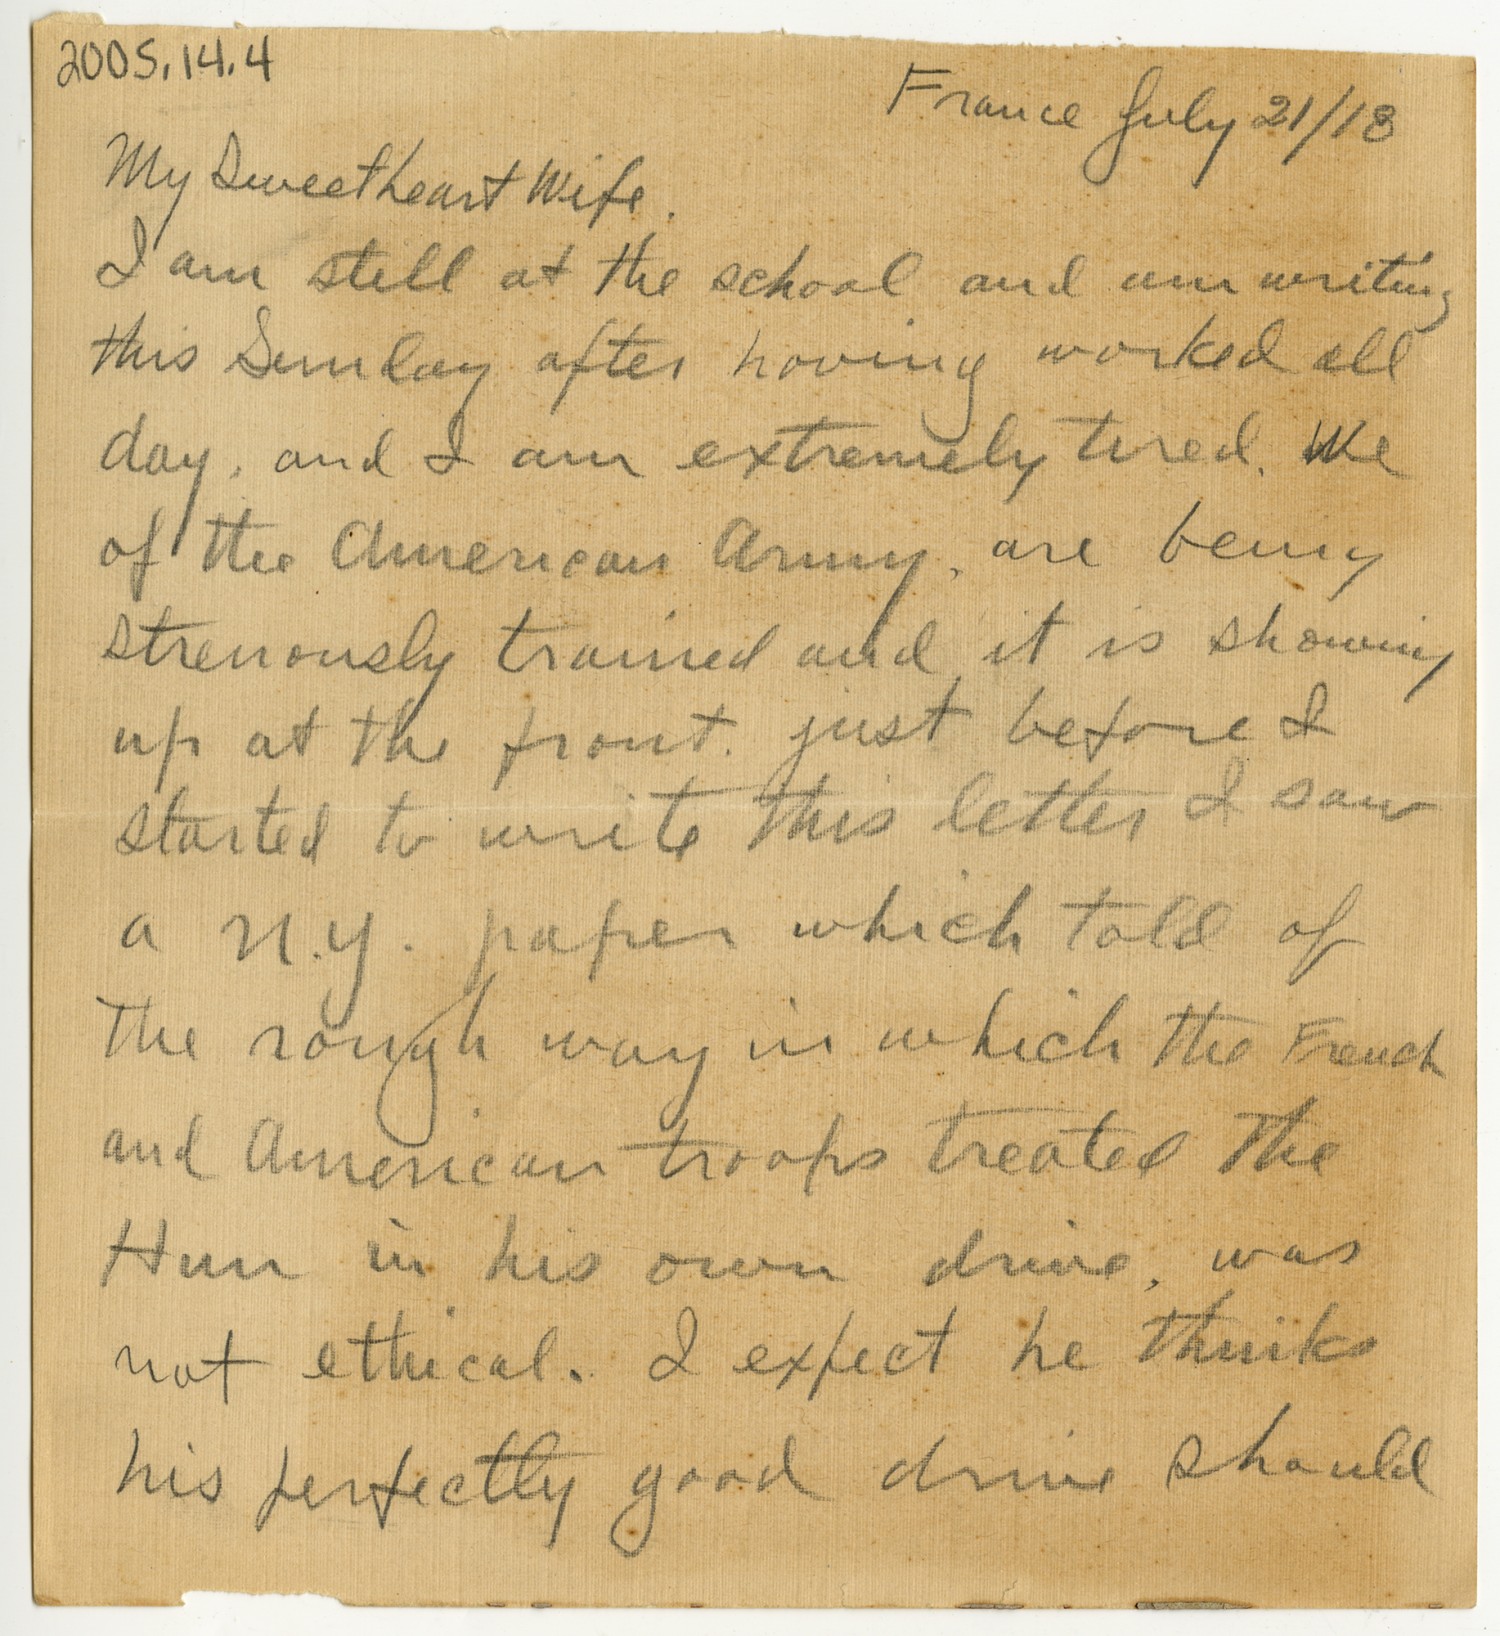 2005.14.4
France July 21/18
My Sweetheart Wife.
I am still at the school and am writing
this Sunday after having worked all
day, and I am extremely tired. We
of the American Army, are being
strenously trained and it is showing
up at the front. just before I
started to write this letter I saw
a N.Y. paper which told of
the rough way in which the French
and American troops treated the
Hun in his own drive, was
not ethical. I expect he thinks
his perfectly good drive should